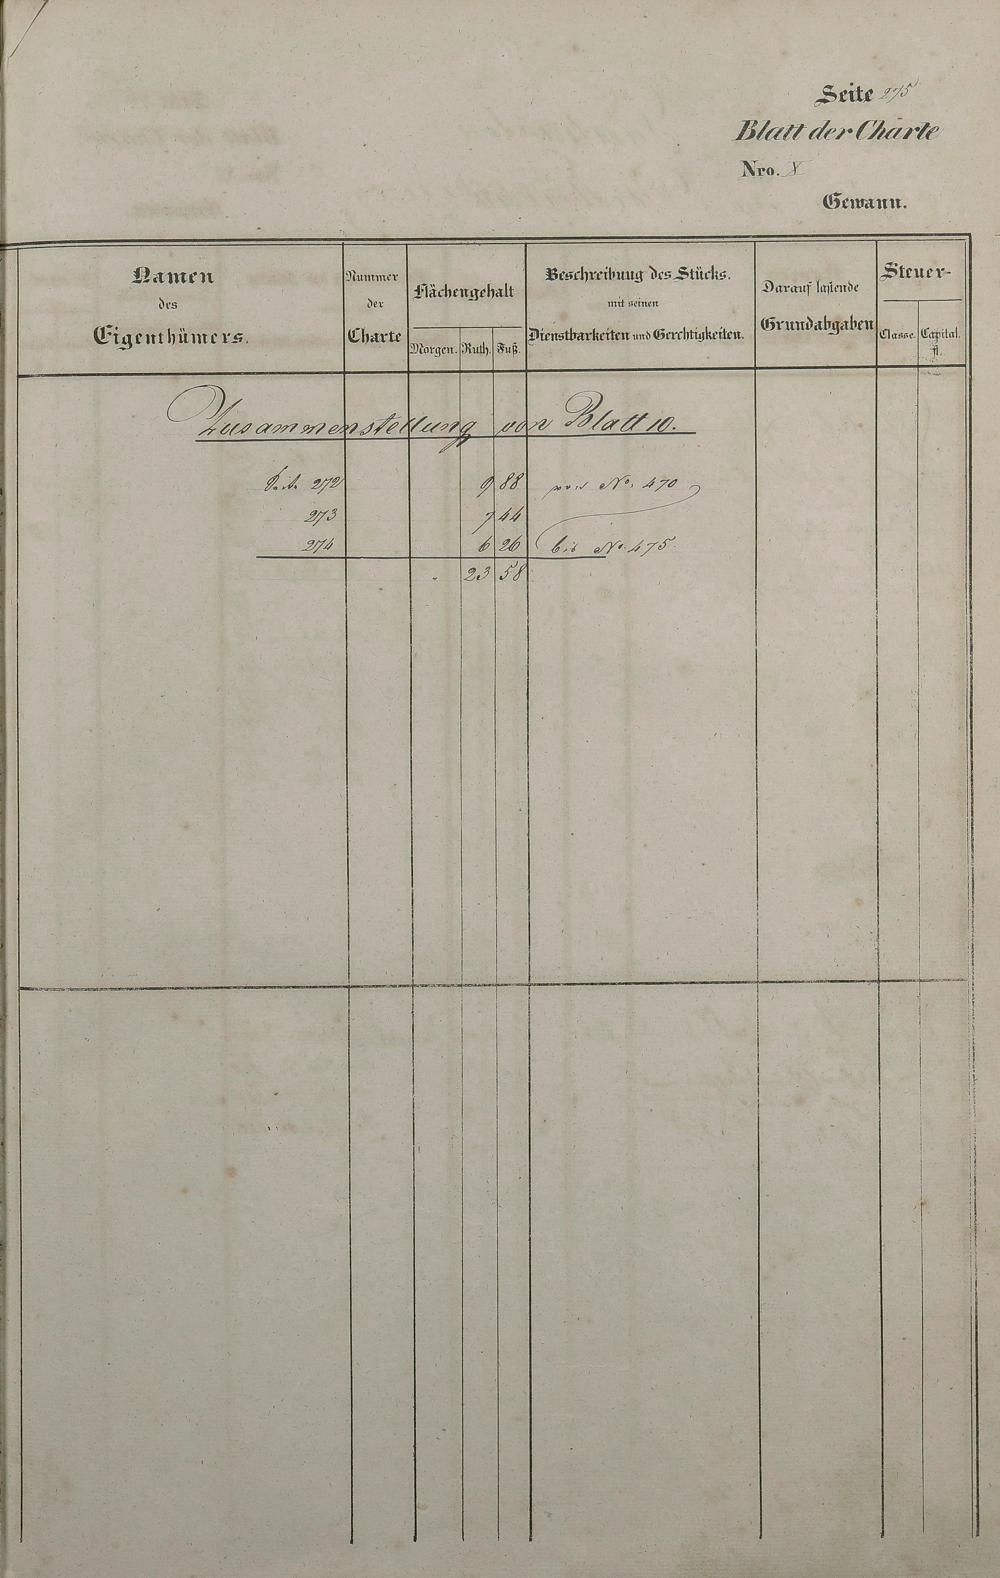 Seite 275
Blatt der Charte
Nro. X
Gewann.
Namen des Eigenthümers.
Nummer der Charte
Flächengehalt
Morgen. Ruth. Fuß.
Beschreibung des Stücks.
mit seinen
Dienstbarkeiten und Gerechtigkeiten.
Darauf lastende
Grundabgaben
Steuer-
Classe. Capital.
fl.
Zusammenstellung von Blatt 10.
Seite 272 9 88 von No. 470
273 7 44
274 6 26 bis No. 475
" 23 58